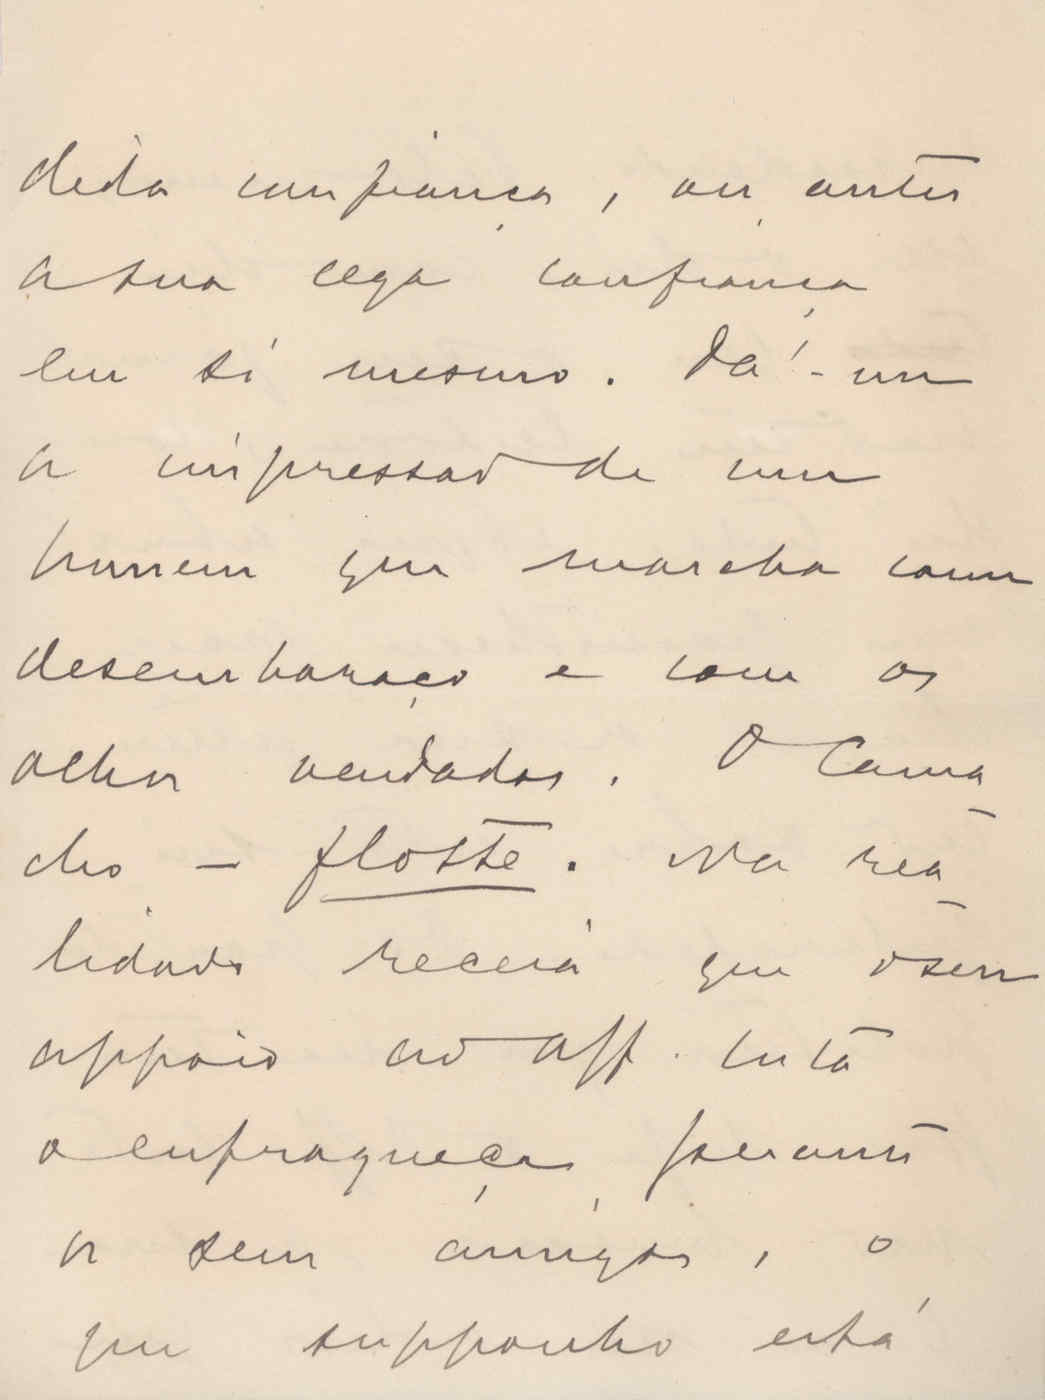 dida confiança, ou antes
a sua cega confiança
em si mesmo. Dá-me
a impressão de um
homem que marcha com
desembaraço e com os
olhos vendados. O Cama
cho — flotte. Na rea
lidade receia que o seu
appoio ao Aff. Costa
o enfraqueça perante
os seus amigos, o
que supponho está